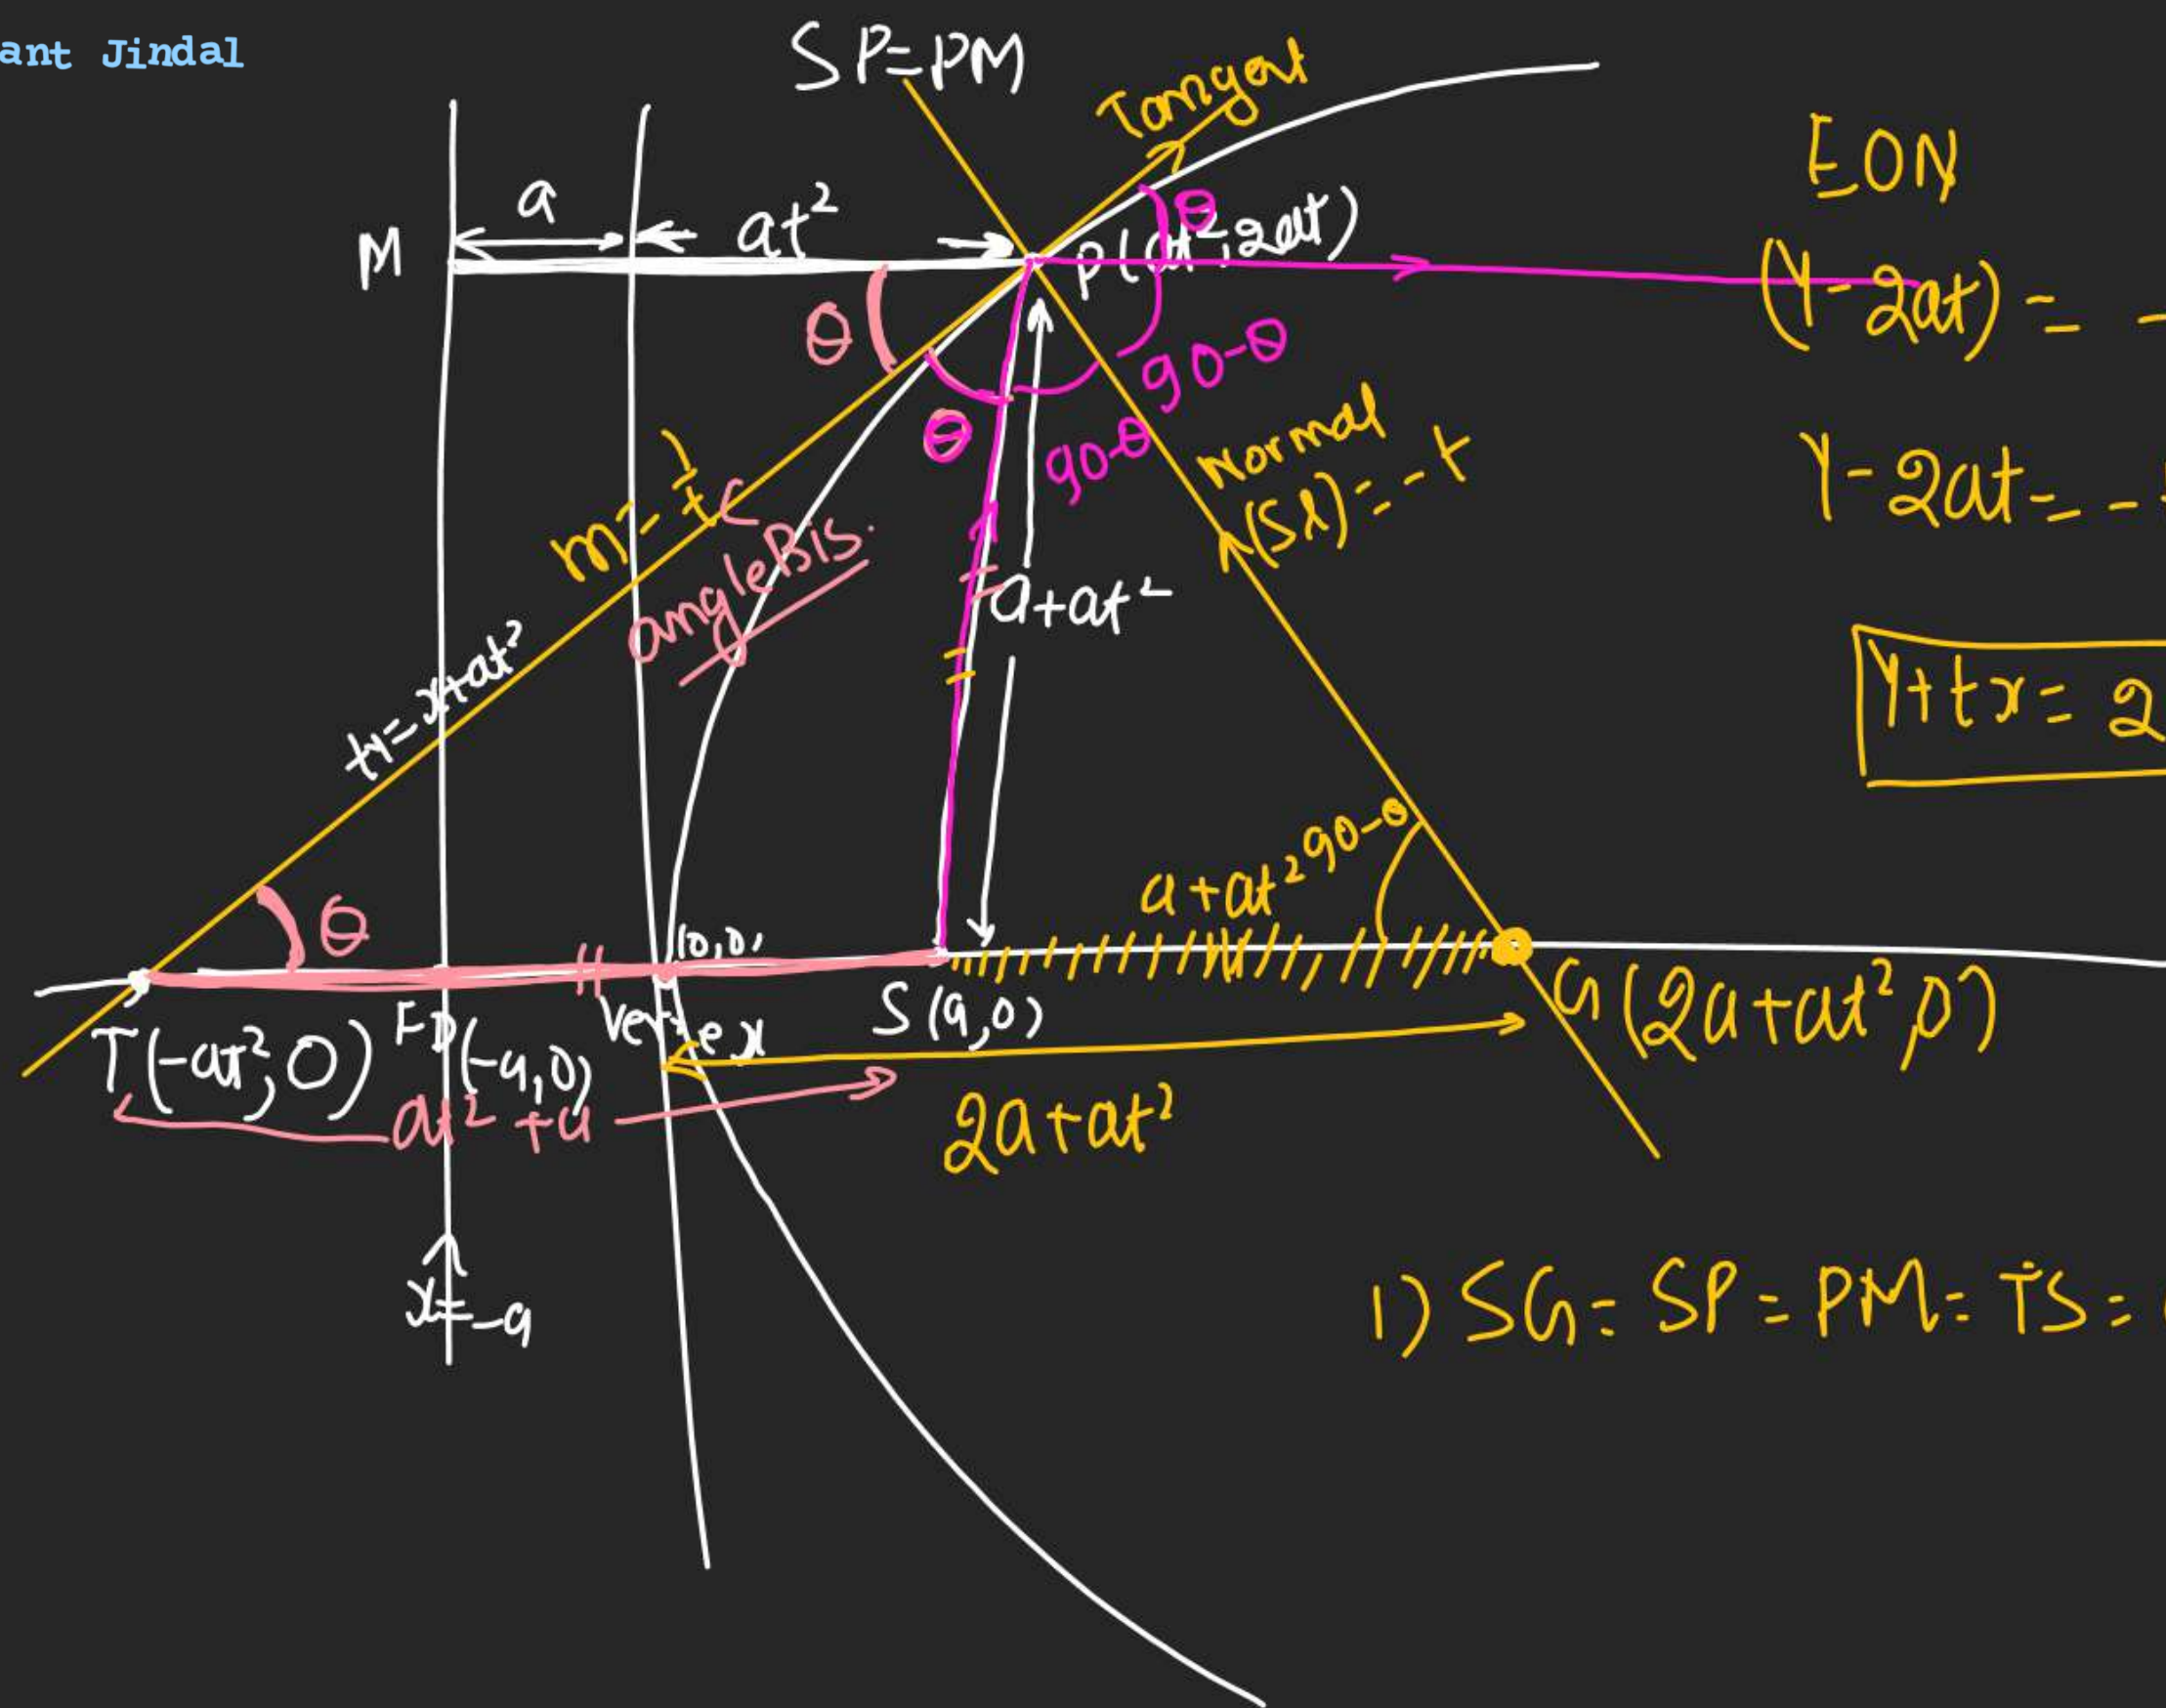 ant Jindal
SP=PM
Tangent
EON
a
at²
M
P(at²,2at)
θ
(Y-2at) = -
θ
90-θ
θ
90-θ
Normal
(Sl)=-t
Y-2at=-
m=1/t
angleBis.
a+at²
ty=x+at²
Y+tx=2
90-θ
a+at²
θ
(0,0)
T(-at²,0)
FD(-a,0)
Vertex
S(a,0)
G(2a+at²,0)
at²+a
2a+at²
x=-a
1) SG=SP=PM=TS=